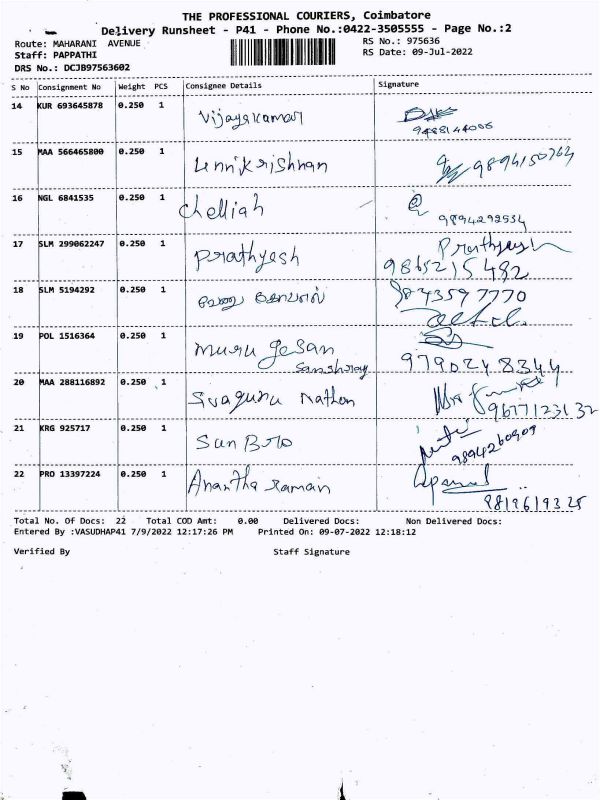 THE PROFESSIONAL COURIERS, Coimbatore
Delivery Runsheet - P41 - Phone No.:0422-3505555 - Page No.:2
Route: MAHARANI AVENUE RS No.: 975636
Staff: PAPPATHI RS Date: 09-Jul-2022
DRS No.: DCJB97563602
S No Consignment No Weight PCS Consignee Details Signature
14 KUR 693645878 0.250 1 Vijayakumar
9488144006
15 MAA 566465800 0.250 1 Unnikrishnan 9894150763
16 NGL 6841535 0.250 1 Chelliah
9894292934
17 SLM 299062247 0.250 1 Prathyesh Prathyesh
9865215482
18 SLM 5194292 0.250 1 9843597770
19 POL 1516364 0.250 1 Murugesan
9790248344
20 MAA 288116892 0.250 1 Sivaguru Nathan
9677123132
21 KRG 925717 0.250 1 Sun Bro
9894260909
22 PRO 13397224 0.250 1 Anantha raman
9819619325
Total No. Of Docs: 22 Total COD Amt: 0.00 Delivered Docs: Non Delivered Docs:
Entered By :VASUDHAP41 7/9/2022 12:17:26 PM Printed On: 09-07-2022 12:18:12
Verified By Staff Signature